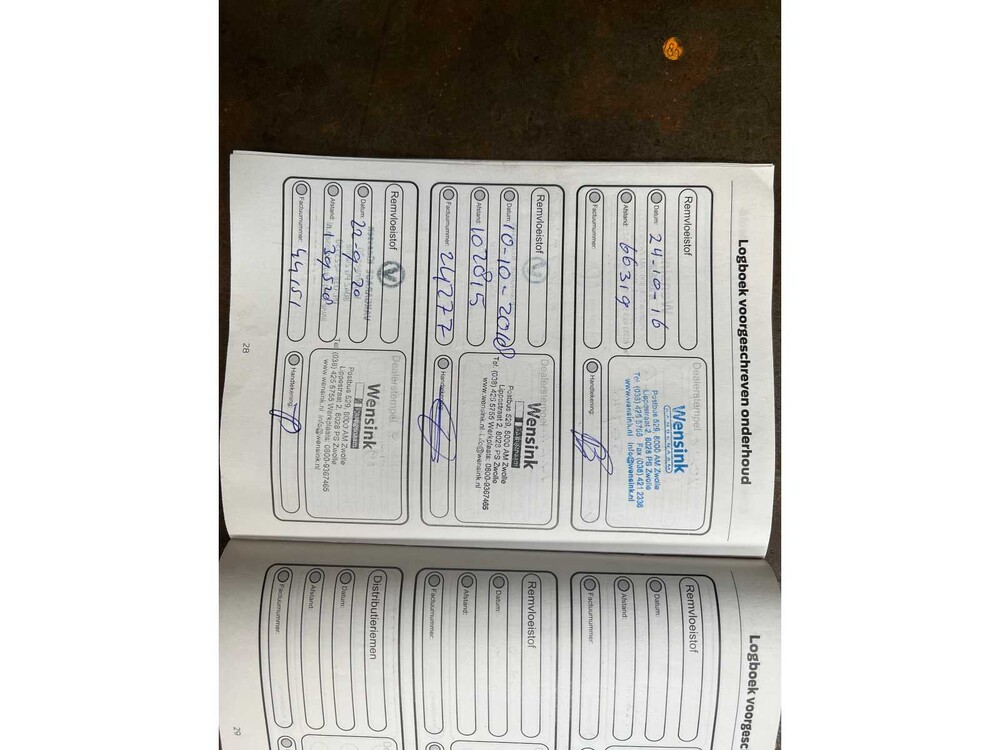 Logboek voorgeschreven onderhoud
Remvloeistof
Datum: 24-10-16
Afstand: 66319
Factuurnummer:
Dealerstempel
Wensink
Postbus 529, 8000 AM Zwolle
Lippestraat 2, 8028 PS Zwolle
Tel. (038) 425 5755 Fax (038) 421 2336
www.wensink.nl info@wensink.nl
Handtekening:
Remvloeistof
Datum: 10-10-2018
Afstand: 102815
Factuurnummer: 24277
Dealerstempel
Wensink
Postbus 529, 8000 AM Zwolle
Lippestraat 2, 8028 PS Zwolle
Tel. (038) 425 5755 Werkplaats: 0800-9367465
www.wensink.nl info@wensink.nl
Handtekening:
Remvloeistof
Datum: 22-9-20
Afstand: 139.528
Factuurnummer: 44151
Dealerstempel
Wensink
Postbus 529, 8000 AM Zwolle
Lippestraat 2, 8028 PS Zwolle
Tel. (038) 425 6755 Werkplaats: 0800-9367465
www.wensink.nl info@wensink.nl
Handtekening:
28
Logboek voorgesc
Remvloeistof
Datum:
Afstand:
Factuurnummer:
Remvloeistof
Datum:
Afstand:
Factuurnummer:
Distributieriemen
Datum:
Afstand:
Factuurnummer:
29